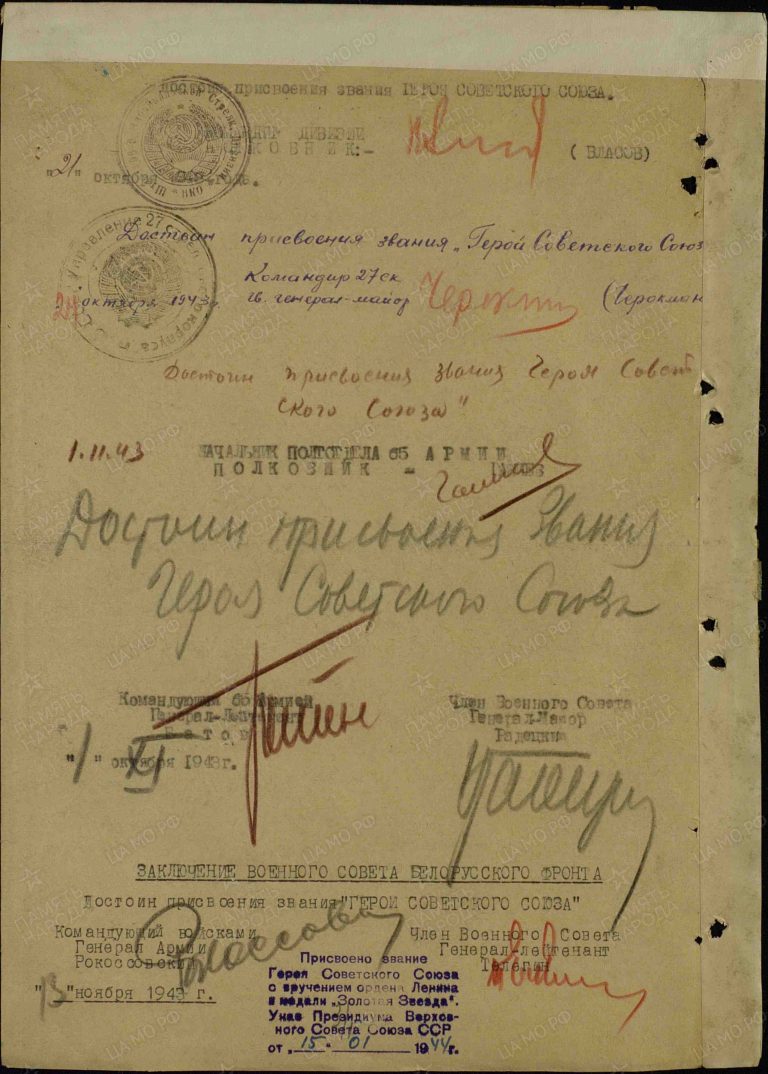 достоин присвоения звания ГЕРОЯ СОВЕТСКОГО СОЮЗА.
КОМАНДИР ДИВИЗИИ
ПОЛКОВНИК:- (ВЛАСОВ)
"21" октября года.
Достоин присвоения звания „Герой Советского Союз
Командир 27 ск
гв. генерал-майор (Черокман
24 октября 1943г
Управление 27 корпуса
Достоин присвоения звания Героя Совет
ского Союза"
1.11.43 НАЧАЛЬНИК ПОЛИТОТДЕЛА 65 АРМИИ
ПОЛКОВНИК -
Достоин присвоения звания
Героя Советского Союза
Командующий 65 Армией
Генерал-Лейтенант
Батов
"1" XI октября 1943г.
Член Военного Совета
Генерал-Майор
Радецкий
ЗАКЛЮЧЕНИЕ ВОЕННОГО СОВЕТА БЕЛОРУССКОГО ФРОНТА
Достоин присвоения звания "ГЕРОЙ СОВЕТСКОГО СОЮЗА"
Командующий войсками
Генерал Армии
Рокоссовский
"13" ноября 1943 г.
Член Военного Совета
Генерал-лейтенант
Телегин
Присвоено звание
Героя Советского Союза
с вручением ордена Ленина
и медали „Золотая Звезда".
Указ Президиума Верхов-
ного Совета Союза ССР
от „15" 01 1944г.
ПАМЯТЬ НАРОДА
ЦАМО.РФ